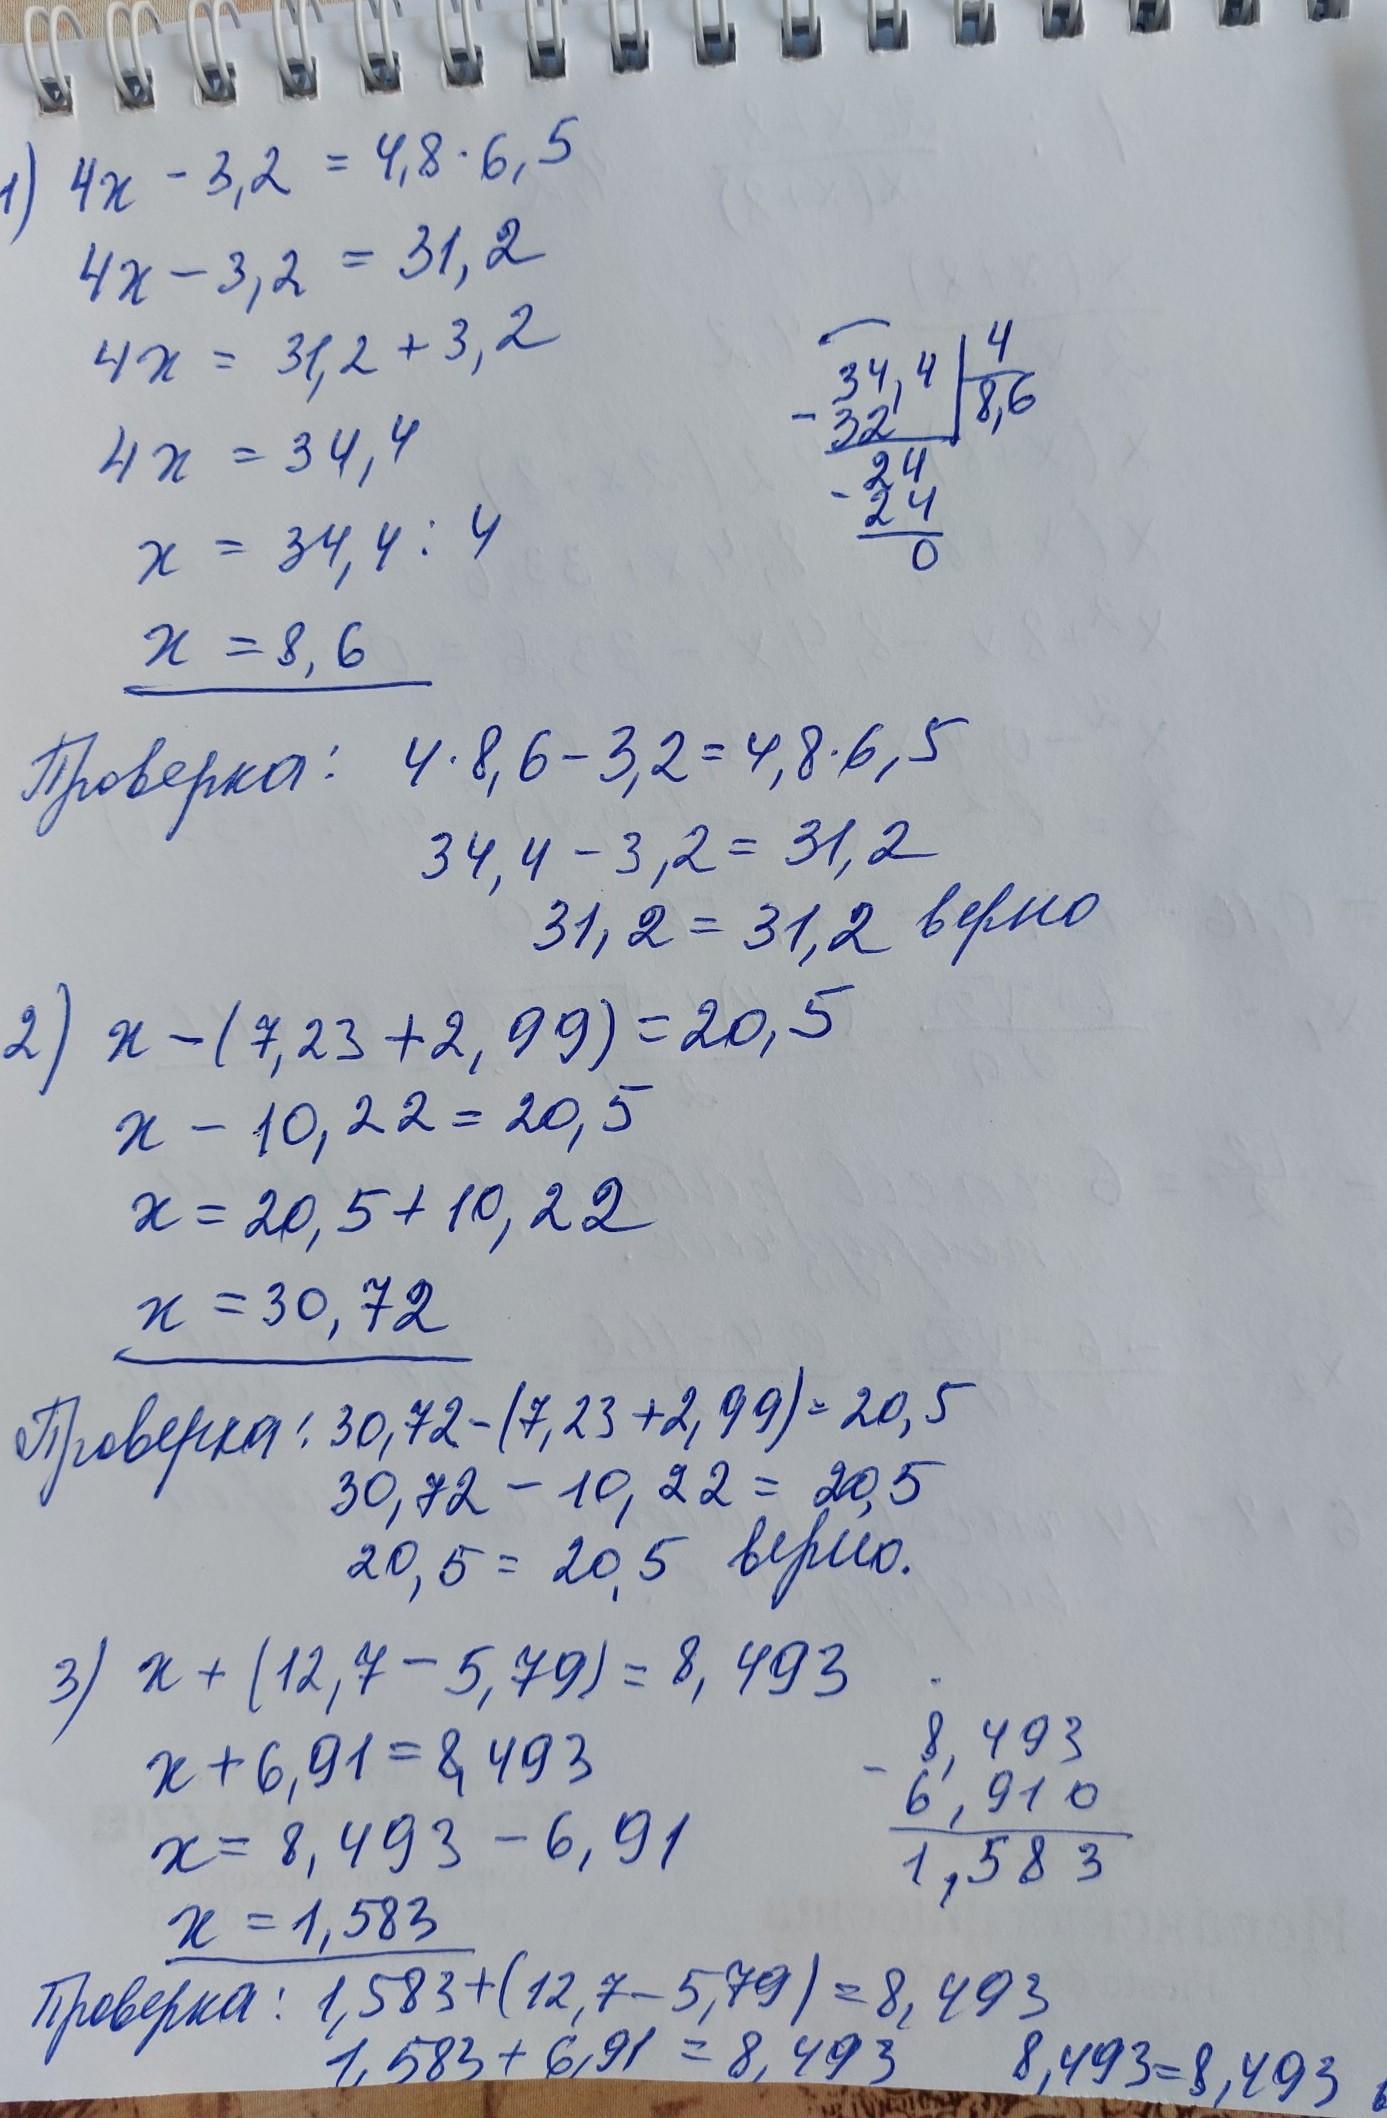 1) 4x - 3,2 = 4,8 · 6,5
4x - 3,2 = 31,2
4x = 31,2 + 3,2
4x = 34,4
x = 34,4 : 4
x = 8,6
34,4 | 4
- 32 | 8,6
24
- 24
0
Проверка: 4 · 8,6 - 3,2 = 4,8 · 6,5
34,4 - 3,2 = 31,2
31,2 = 31,2 верно
2) x - (7,23 + 2,99) = 20,5
x - 10,22 = 20,5
x = 20,5 + 10,22
x = 30,72
Проверка: 30,72 - (7,23 + 2,99) = 20,5
30,72 - 10,22 = 20,5
20,5 = 20,5 верно.
3) x + (12,7 - 5,79) = 8,493
x + 6,91 = 8,493
x = 8,493 - 6,91
x = 1,583
8,493
- 6,910
1,583
Проверка: 1,583 + (12,7 - 5,79) = 8,493
1,583 + 6,91 = 8,493 8,493 = 8,493